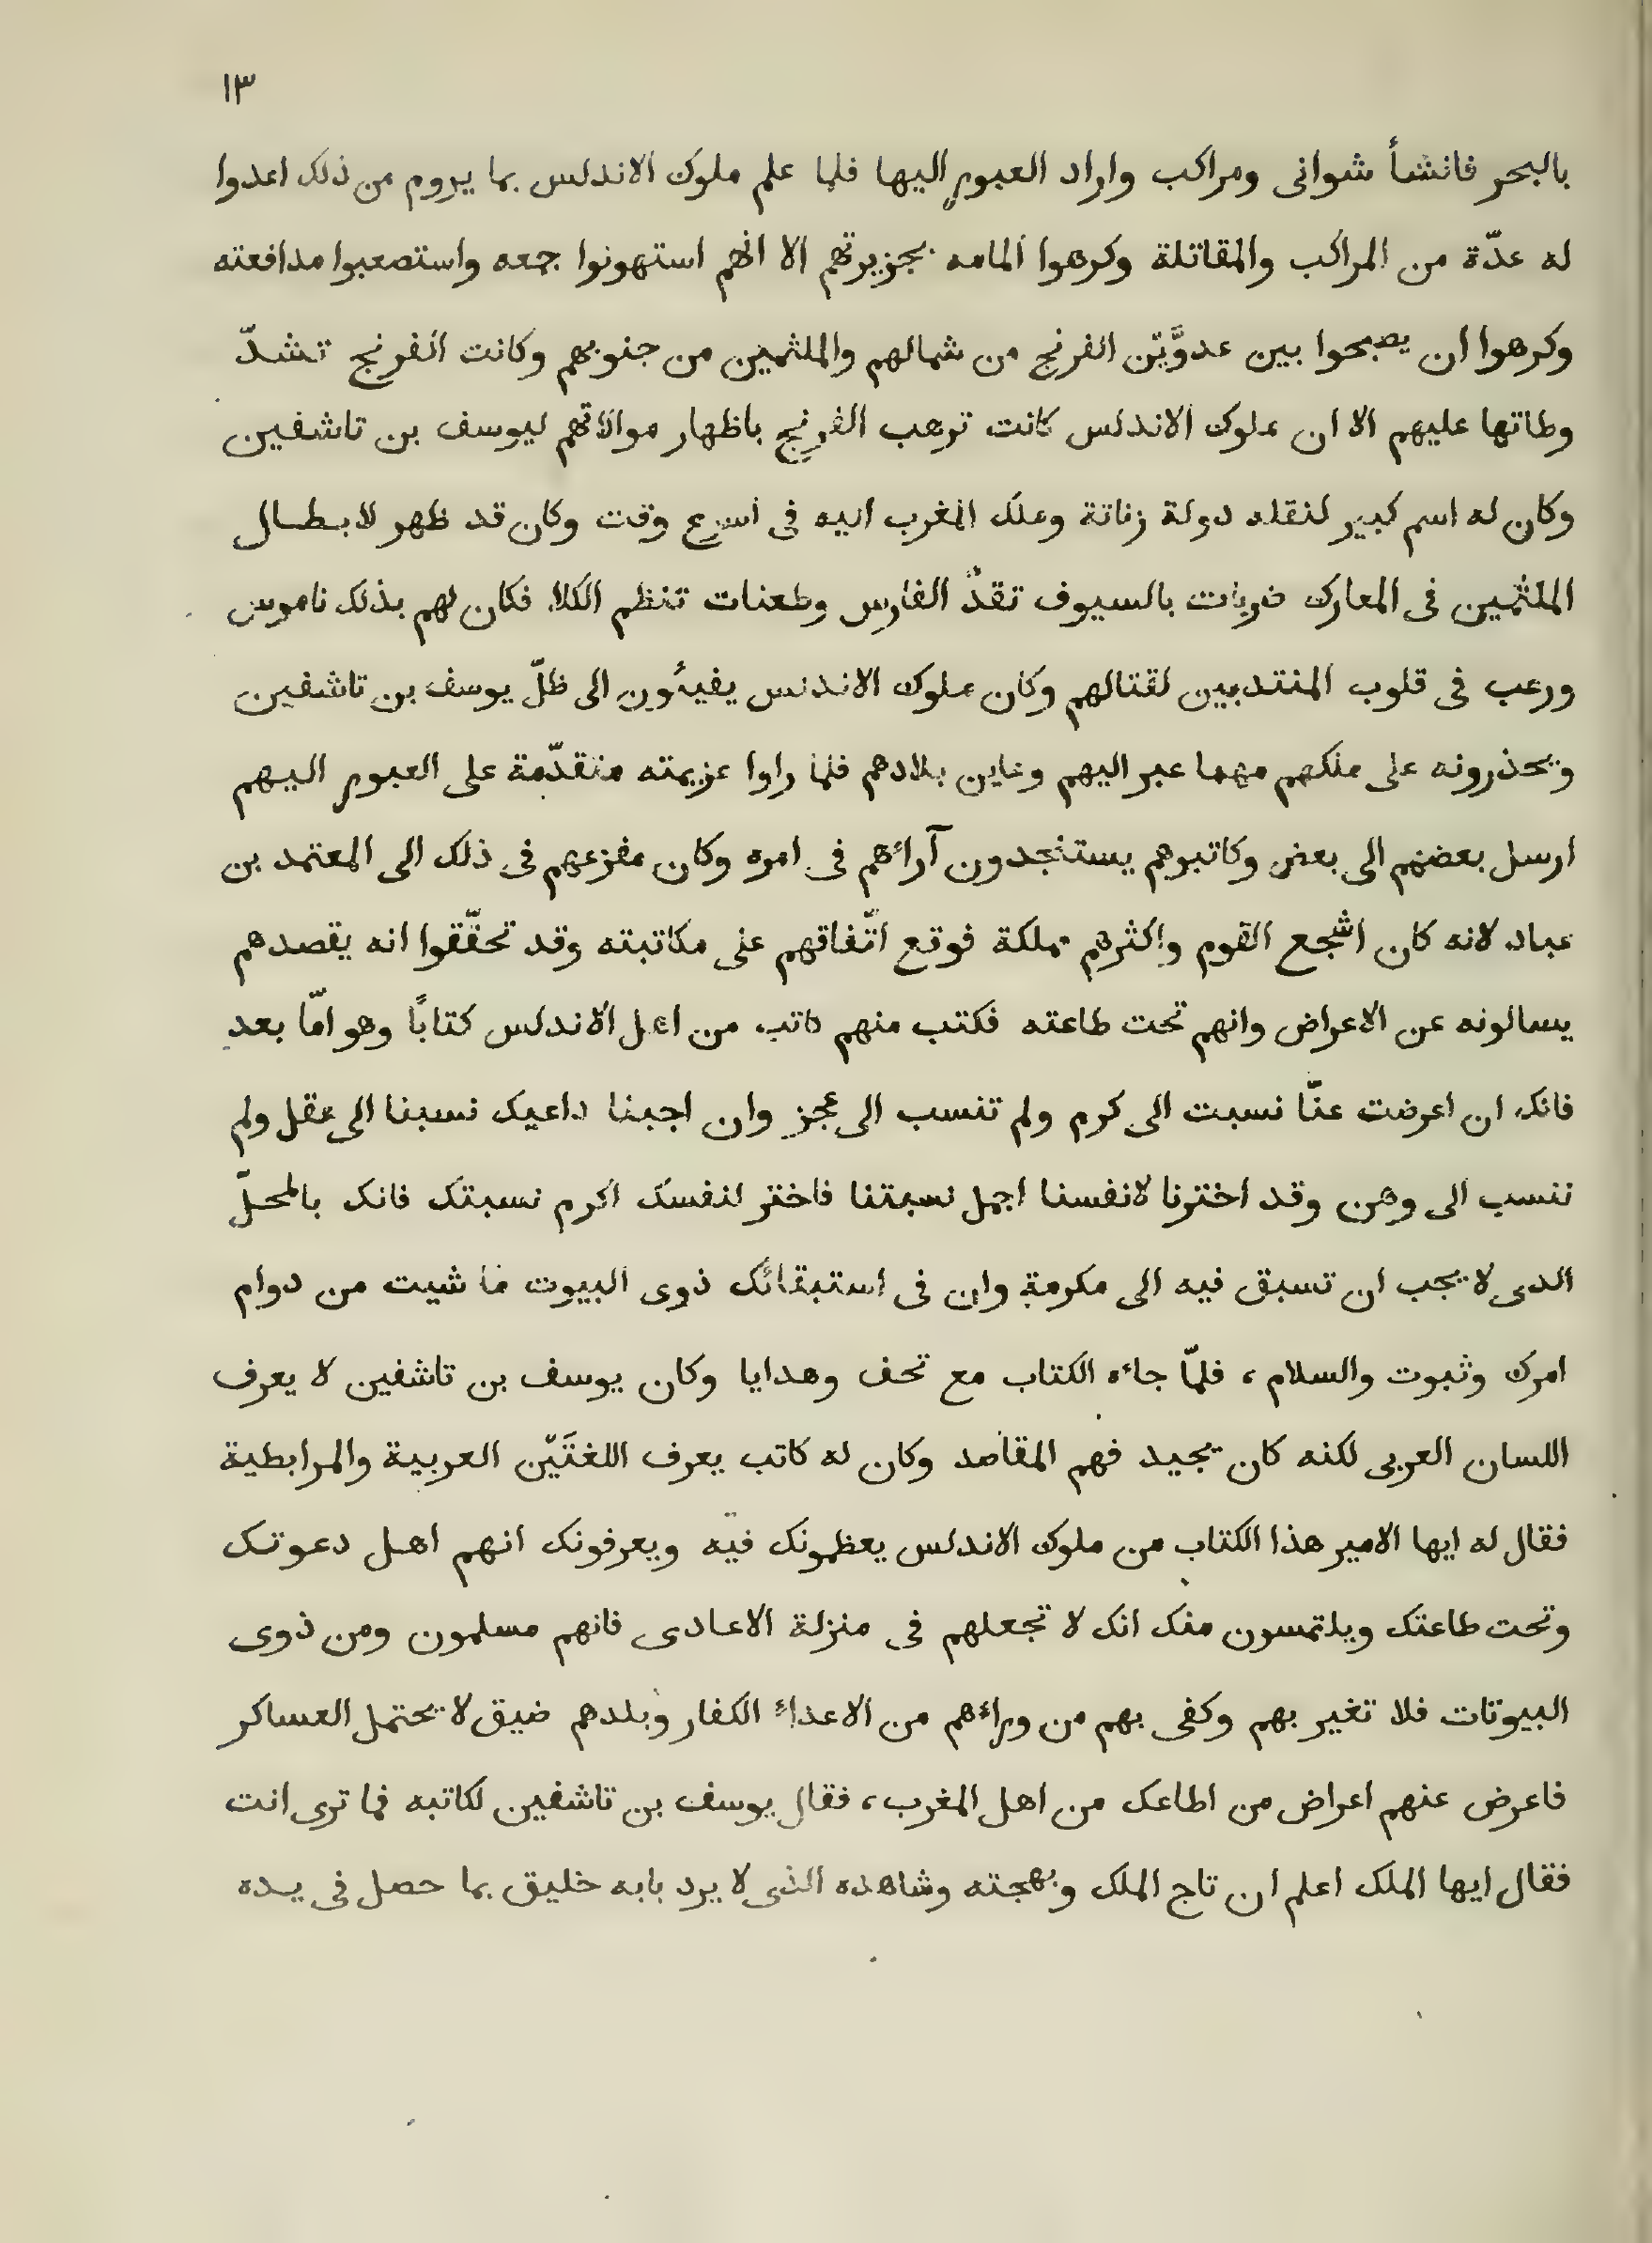 ١٣
بالبحر فانشأ شوانى ومراكب واراد العبور اليها فلما علم ملوك الاندلس بما يروم من ذلك اعدوا
له عدّة من المراكب والمقاتلة وكرهوا المامه بجزيرتهم الا انهم استهونوا جمعه واستصعبوا مدافعته
وكرهوا ان يصبحوا بين عدوَّيْن الفرنج من شمالهم والملثمين من جنوبهم وكانت الفرنج تشدّ
وطاتها عليهم الا ان ملوك الاندلس كانت ترهب الفرنج باظهار موالاتهم ليوسف بن تاشفين
وكان له اسم كبير لنقله دولة زناتة وملك المغرب اليه فى اسرع وقت وكان قد ظهر لابطال
الملثمين فى المعارك ضربات بالسيوف تقدّ الفارس وطعنات تنظم الكلا فكان لهم بذلك ناموس
ورعب فى قلوب المنتدبين لقتالهم وكان ملوك الاندلس يفيئون الى ظلّ يوسف بن تاشفين
ويحذرونه على ملكهم مهما عبر اليهم وعاين بلادهم فلما راوا عزيمته متقدّمة على العبور اليهم
ارسل بعضهم الى بعض وكاتبوهم يستنجدون آرائهم فى امره وكان مفزعهم فى ذلك الى المعتمد بن
عباد لانه كان اشجع القوم واكثرهم مملكة فوقع اتّفاقهم على مكاتبته وقد تحقّقوا انه يقصدهم
يسالونه عن الاعراض وانهم تحت طاعته فكتب منهم كاتب من اهل الاندلس كتابًا وهو امّا بعد
فانك ان اعرضت عنّا نسبت الى كرم ولم تنسب الى عجز وان اجبنا داعيك نسبنا الى عقل ولم
ننسب الى وهن وقد اخترنا لانفسنا اجمل نسبتنا فاختر لنفسك اكرم نسبتك فانك بالمحلّ
الذى لا يجب ان تسبق فيه الى مكرمة وان فى استبقائك ذوى البيوت ما شيت من دوام
امرك وثبوت والسلام، فلمّا جاءه الكتاب مع تحف وهدايا وكان يوسف بن تاشفين لا يعرف
اللسان العربى لكنه كان يجيد فهم المقاصد وكان له كاتب يعرف اللغتَيْن العربية والمرابطية
فقال له ايها الامير هذا الكتاب من ملوك الاندلس يعظمونك فيه ويعرفونك انهم اهل دعوتك
وتحت طاعتك ويلتمسون منك انك لا تجعلهم فى منزلة الاعادى فانهم مسلمون ومن ذوى
البيوتات فلا تغير بهم وكفى بهم من ورائهم من الاعداء الكفار وبلدهم ضيق لا يحتمل العساكر
فاعرض عنهم اعراض من اطاعك من اهل المغرب، فقال يوسف بن تاشفين لكاتبه فما ترى انت
فقال ايها الملك اعلم ان تاج الملك وبهجته وشاهده الذى لا يرد بابه خليق بما حصل فى يده